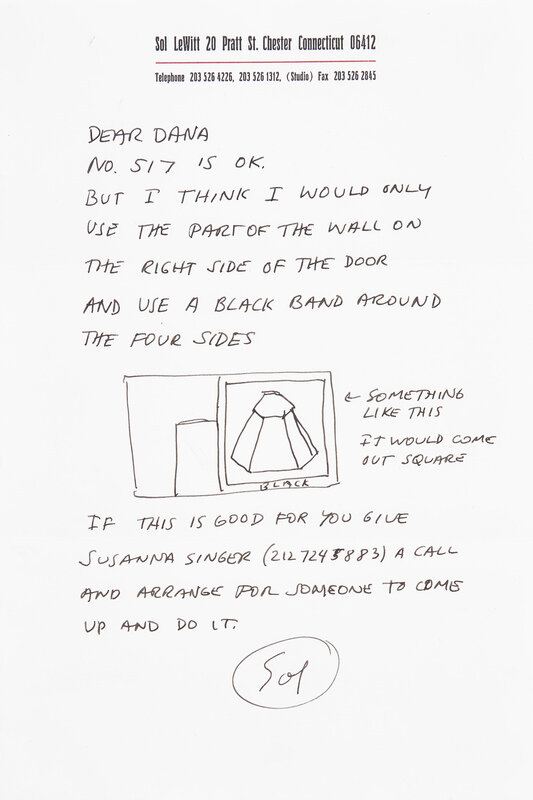 Sol LeWitt 20 Pratt St. Chester Connecticut 06412
Telephone 203 526 4226, 203 526 1312, (Studio) Fax 203 526 2845
DEAR DANA
NO. 517 IS OK.
BUT I THINK I WOULD ONLY
USE THE PART OF THE WALL ON
THE RIGHT SIDE OF THE DOOR
AND USE A BLACK BAND AROUND
THE FOUR SIDES
← SOMETHING
LIKE THIS
IT WOULD COME
OUT SQUARE
BLACK
IF THIS IS GOOD FOR YOU GIVE
SUSANNA SINGER (212 724 5883) A CALL
AND ARRANGE FOR SOMEONE TO COME
UP AND DO IT.
Sol